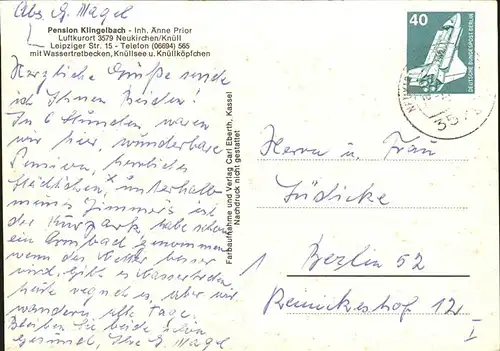 Abs. G. Nagel
Pension Klingelbach - Inh. Änne Prior
Luftkurort 3579 Neukirchen/Knüll
Leipziger Str. 15 - Telefon (06694) 565
mit Wassertretbecken, Knüllsee u. Knüllköpfchen
Herzliche Grüße sende
ich Ihnen Beiden!
In 6 Stunden waren
wir hier, wunderbare
Pension, herrliches
Städtchen, unterhalb
meines Zimmers ist
der Kurpark, habe schon
ein Armbad genommen
wenn das Wetter besser
wird, gibt es Wassertreten.
heute regnet es, aber wir
wandern alle Tage.
Bleiben Sie beide schön
gesund, Ihre G. Nagel
Farbaufnahme und Verlag Carl Eberth, Kassel
Nachdruck nicht gestattet
40
DEUTSCHE BUNDESPOST BERLIN
3579
Herrn u. Frau
Lüdicke
1 Berlin 52
Reinickeshof 12
I